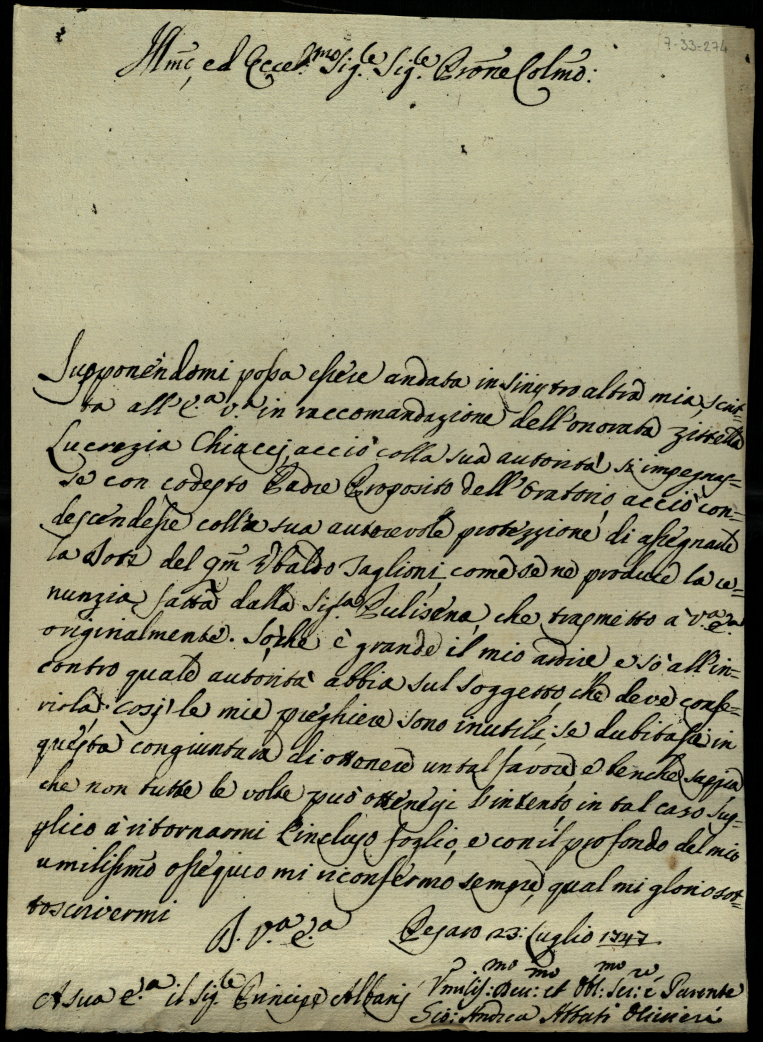 7-33-274
Ill.mo ed Eccel.mo Sig.re Sig.re Prone Colmo:
Supponendomi possa essere andata in sinistro altra mia, scrit-
ta all'E.a V.a in raccomandazione dell'onorata zittella
Lucrezia Chiacej, acciò colla sua autorità si impegnas-
se con codesto Padre Proposito dell'Oratorio, acciò con-
descendesse colla sua autorevole protezzione di assegnare
la Dote del qm Ubaldo Taglioni, come se ne produce la re-
nunzia fatta dalla Sig.a Pulisena, che trasmetto a V.a E.a
originalmente. So che è grande il mio ardire e so all'in-
contro quale autorità abbia sul soggetto, che deve confe-
rirla; così le mie preghiere sono inutili se dubitassi in
questa congiuntura di ottenere un tal favore, e benche sappia
che non tutte le volte può ottenersi l'intento, in tal caso sup-
plico à ritornarmi l'incluso foglio, e con il profondo del mio
umilissmo ossequio mi riconfermo sempre, qual mi glorio sot-
toscrivermi
D. V.a E.a Pesaro 23: Luglio 1747
A sua E.a il Sig.re Principe Albani
Umilis:mo Dev:mo et Obl:mo Ser:re e Parente
Gio: Andrea Abbati Olivieri